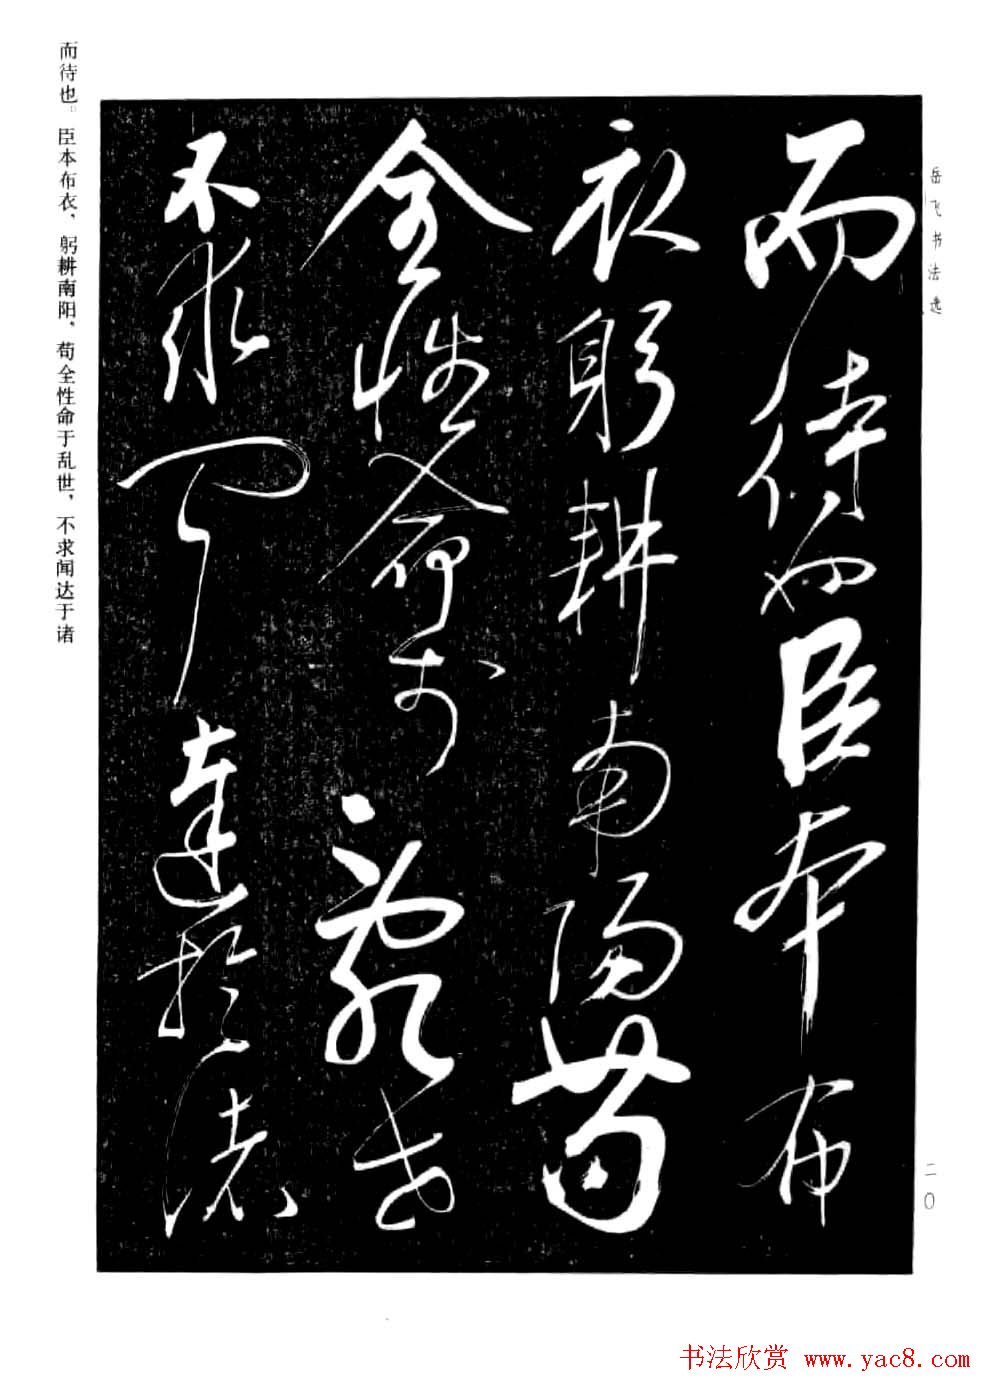 岳飞书法选
而待也臣本布
衣躬耕南陽苟
全性命於亂世
不求聞達於諸
而待也。臣本布衣，躬耕南阳，苟全性命于乱世，不求闻达于诸
二〇
书法欣赏 www.yac8.com